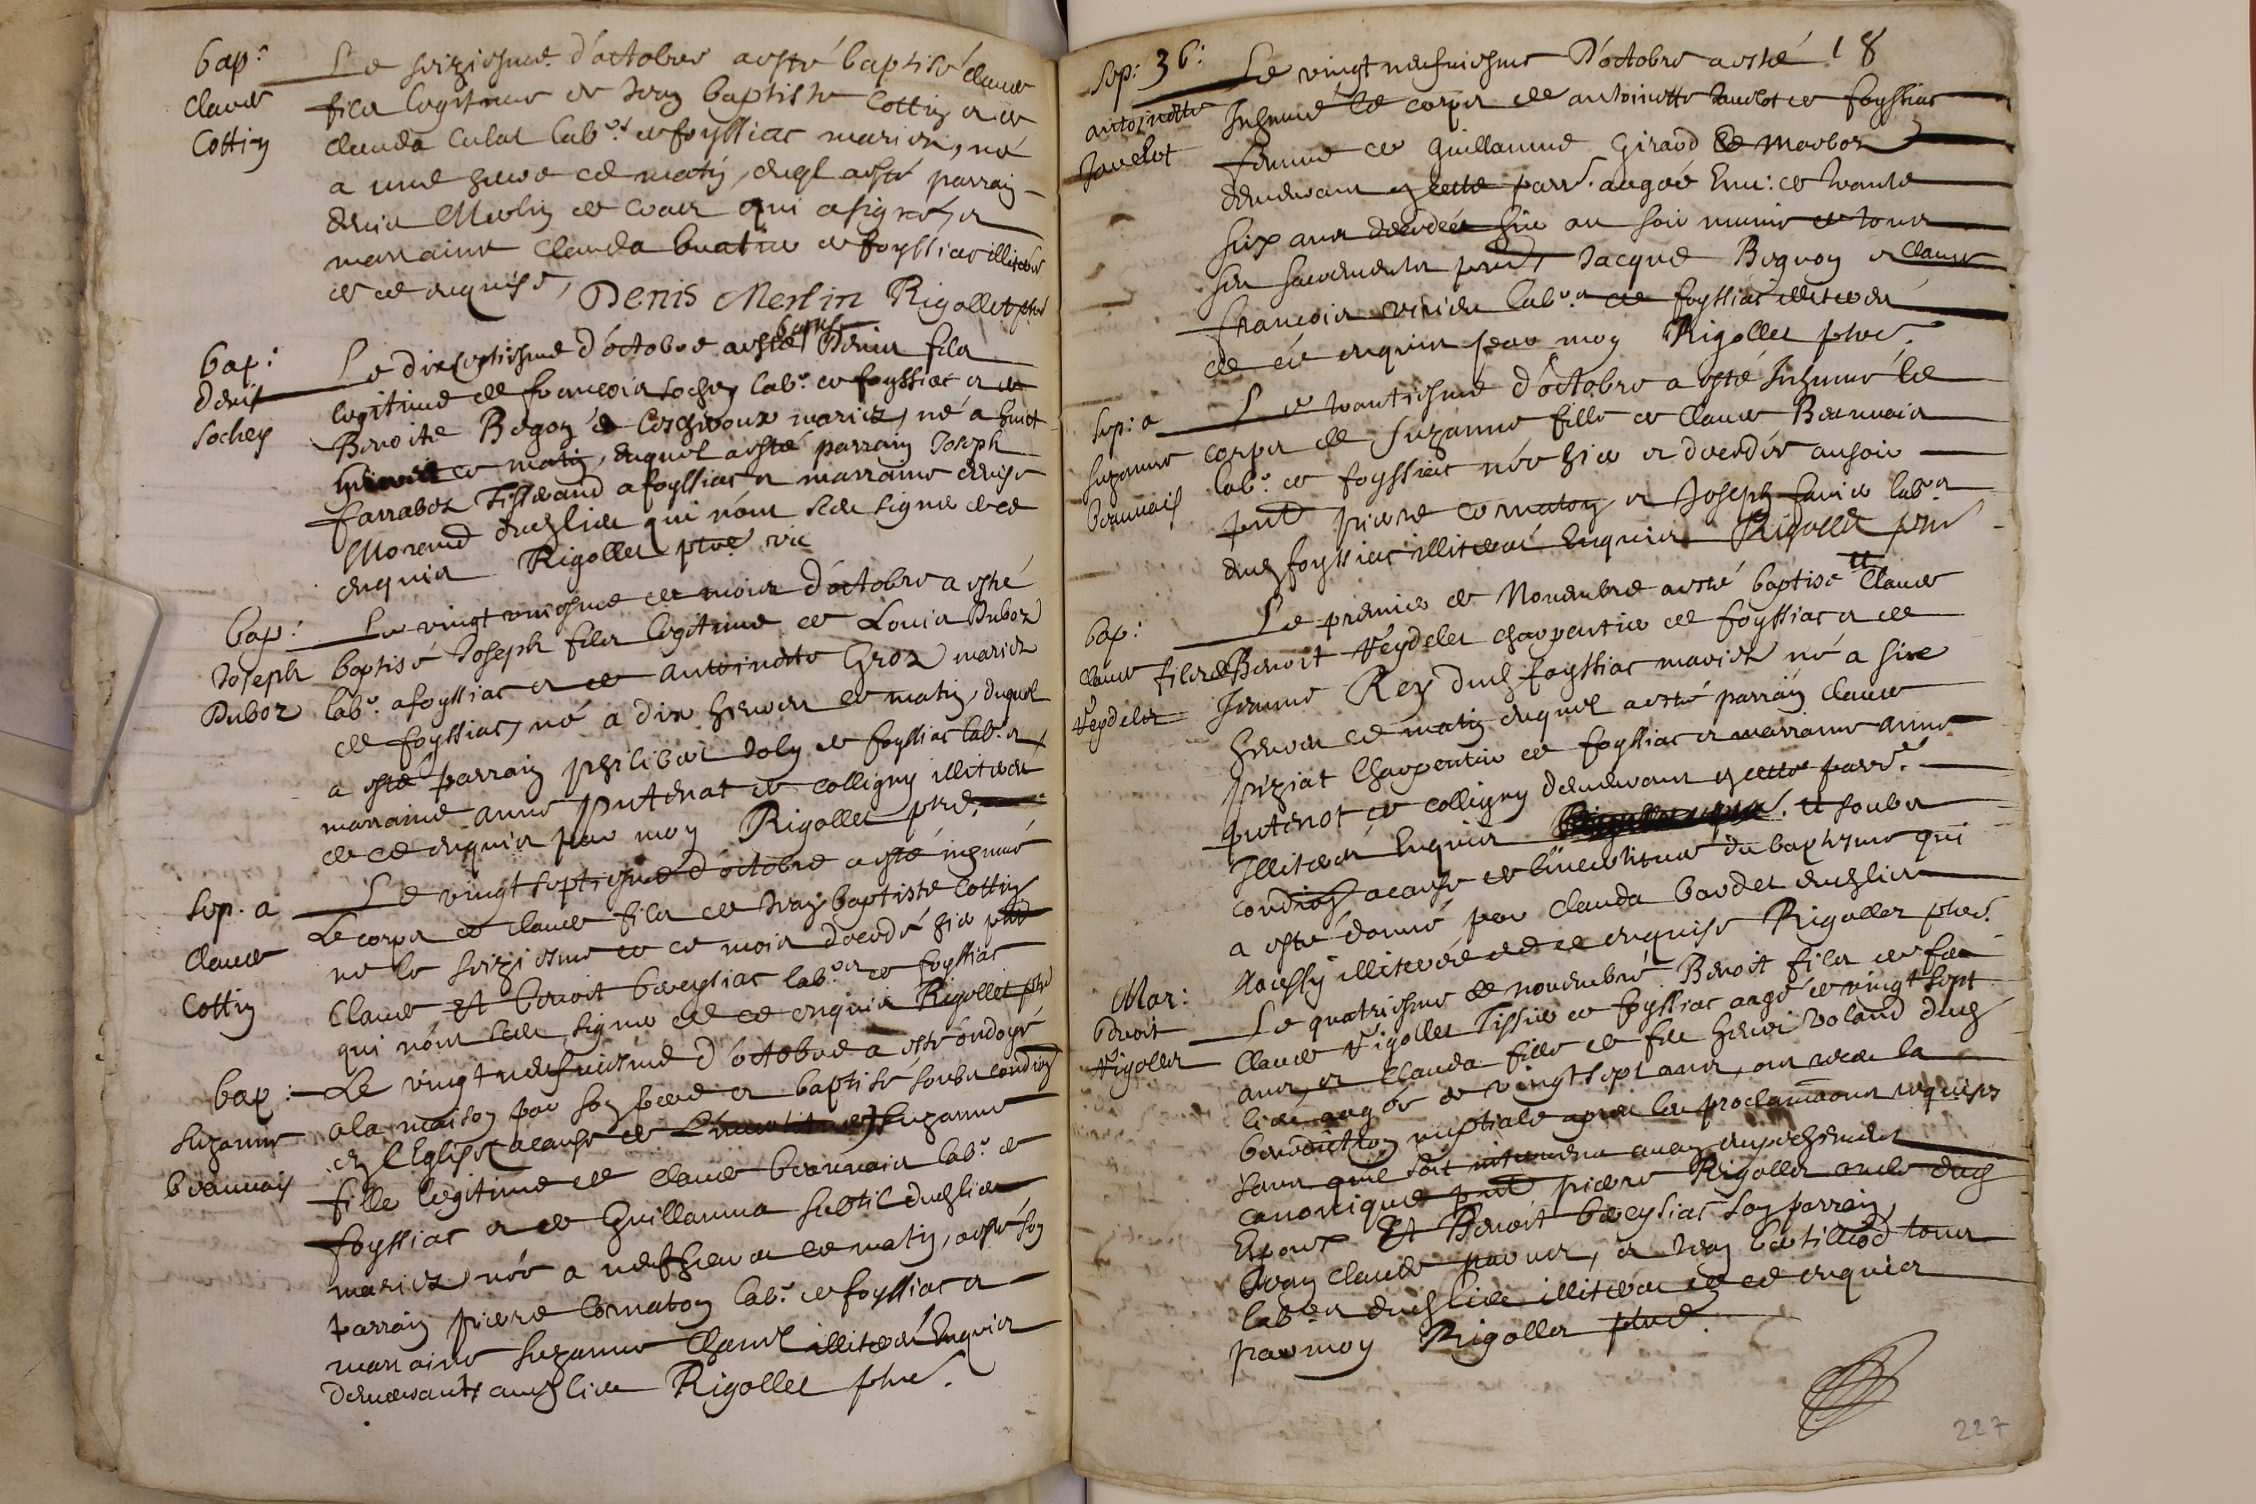 bap:
Claude
Cottin
Le seiziesme d'octobre a esté baptisé Claude
fils legitime de Jean baptiste Cottin et de
Clauda Culat lab.r de foyssiac mariez, né
a une heure de matin, duql a esté parrain
denis Merlin de Coar qui a signé, et
marraine Clauda buatier de foyssiac illiterée
de ce enquise, Denis Merlin Rigollet ptre
bap:
denis
sochey
Le dixseptiesme d'octobre a esté baptisé Denis fils
legitime de françois sochey lab.r de foyssiac et de
Benoite Bogoz de mariez, né a huict
heures de matin, duquel a esté parrain Joseph
farraboz Tisserand a foyssiac et marraine denise
Morand dudt lieu qui n'ont sceu signer de ce
enquis Rigollet ptre vic
bap:
Joseph
Duboz
Le vingt uniesme de mois d'octobre a esté
baptisé Joseph fils legitime de Louis Duboz
lab.r a foyssiac et de Antoinette Groz mariez
de foyssiac, né a dix heures de matin, duquel
a esté parrain philibert Joly de foyssiac lab.r et
marraine anne putenat de colligny illiterés
de ce enquis par moy Rigollet ptre.
Sep. a
Claude
Cottin
Le vingt septiesme d'octobre a esté inhumé
Le corps de Claude fils de Jean baptiste Cottin
né le seiziesme de ce mois decedé hier pnt
Claude et benoit breyssiac lab.rs de foyssiac
qui n'ont sceu signer de ce enquis Rigollet ptre
bap:
Suzanne
Beauvais
Le vingt neufviesme d'octobre a esté ondoyé
a la maison par son frere et baptisé soubs condion
en l'Eglise a cause de Suzanne
fille legitime de Claude beauvais lab.r de
foyssiac et de Guillauma subtil dudt lieu
mariez, née a neuf heures de matin, a esté son
parrain pierre Cornaton lab.r de foyssiac et
marraine Suzanne Chanel illiterés Enquis
demeurants audt lieu Rigollet ptre.
Sep: 36:
18
antoinette
Javelot
Le vingt neufviesme d'octobre a esté
Inhumé le corps de antoinette Javelot de foyssiac
femme de Guillaume Giraud de Marboz
demeurant en cette parr. aagée Env: de trante
six ans decedée hier au soir munie de tous
ses sacrements pnt, Jacque Boguoz et Claude
françois vivier lab.rs de foyssiac illiterés
de ce enquis par moy Rigollet ptre.
Sep: a
Suzanne
beauvais
Le trantiesme d'octobre a esté Inhumé le
corps de Suzanne fille de Claude Beauvais
lab.r de foyssiac née hier et decedée au soir
pnt pierre Cornaton et Joseph favier lab.rs
dudt foyssiac illiterés Enquis Rigollet ptre
bap:
Claude
Veydelet
Le premier de Novembre a esté baptisé Claude
fils de Benoit Veydelet charpentier de foyssiac et de
Jeanne Rey dudt foyssiac mariez né a six
heures de matin duquel a esté parrain Claude
priziat Charpentier de foyssiac et marraine anne
putenot de colligny demeurant en cette parr.
Illiterés Enquis et soubs
condion a cause de l'incertitude du baptisme qui
a esté donné par Clauda bardet dudt lieu
illiterée de ce enquise Rigollet ptre.
Mar:
Benoit
Rigollet
Le quatriesme de novembre Benoit fils de feu
Claude Rigollet Tissier de foyssiac aagé de vingt sept
ans, et Clauda fille de feu henri Voland dudt
lieu aagée de vingt sept ans, ont receu la
benediction nuptiale apres les proclamaons requises
sans quil soit intervenu aucun empeschement
canonique pnt pierre Rigollet oncle dudt
Epoux Et Benoit breysiac son parrain,
Jean Claude pavier, et Jean bertilliod tous
lab.rs dudt lieu illiterés de ce enquis
par moy Rigollet ptre.
227